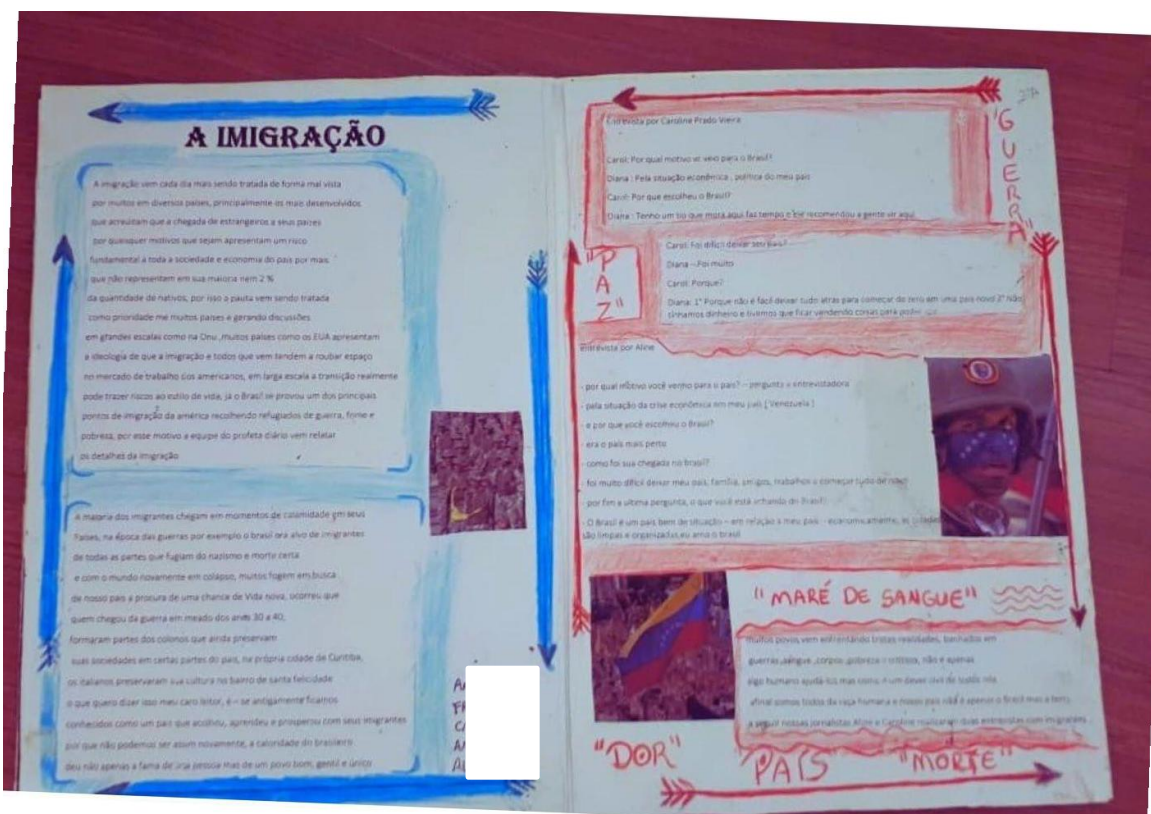 A IMIGRAÇÃO
A imigração vem cada dia mais sendo tratada de forma mal vista
por muitos em diversos países, principalmente os mais desenvolvidos
que acreditam que a chegada de estrangeiros a seus países
por quaisquer motivos que sejam apresentam um risco
fundamental a toda a sociedade e economia do país por mais
que não representem em sua maioria nem 2 %
da quantidade de nativos, por isso a pauta vem sendo tratada
como prioridade me muitos países e gerando discussões
em grandes escalas como na Onu ,muitos países como os EUA apresentam
a ideologia de que a imigração e todos que vem tendem a roubar espaço
no mercado de trabalho dos americanos, em larga escala a transição realmente
pode trazer riscos ao estilo de vida, já o Brasil se provou um dos principais
pontos de imigração da américa recolhendo refugiados de guerra, fome e
pobreza, por esse motivo a equipe do profeta diário vem relatar
os detalhes da imigração
A maioria dos imigrantes chegam em momentos de calamidade em seus
Países, na época das guerras por exemplo o brasil era alvo de imigrantes
de todas as partes que fugiam do nazismo e morte certa
e com o mundo novamente em colapso, muitos fogem em busca
de nosso país a procura de uma chance de Vida nova, ocorreu que
quem chegou da guerra em meado dos anos 30 a 40,
formaram partes dos colonos que ainda preservam
suas sociedades em certas partes do país, na própria cidade de Curitiba,
os italianos preservaram sua cultura no bairro de santa felicidade
o que quero dizer isso meu caro leitor, é – se antigamente ficamos
conhecidos como um país que acolheu, aprendeu e prosperou com seus imigrantes
por que não podemos ser assim novamente, a caloridade do brasileiro
deu não apenas a fama de uma pessoa mas de um povo bom, gentil e único
"GUERRA"
Entrevista por Caroline Prado Vieira
Carol: Por qual motivo se veio para o Brasil?
Diana : Pela situação econômica , política do meu país
Carol: Por que escolheu o Brasil?
Diana : Tenho um tio que mora aqui faz tempo e ele recomendou a gente vir aqui
"PAZ"
Carol: Foi difícil deixar seu país?
Diana – Foi muito
Carol: Porque?
Diana: 1° Porque não é fácil deixar tudo atras para começar do zero em uma pais novo 2° Não
tínhamos dinheiro e tivemos que ficar vendendo coisas para poder
entrevista por Aline
- por qual motivo você venho para o país? – pergunta a entrevistadora
- pela situação da crise econômica em meu país ( Venezuela )
- e por que você escolheu o Brasil?
- era o país mais perto
- como foi sua chegada no brasil?
- foi muito difícil deixar meu país, família, amigos, trabalhos e começar tudo de novo
- por fim a ultima pergunta, o que você está achando do Brasil?
- O Brasil é um país bem de situação – em relação a meu país - economicamente, as cidades
são limpas e organizadas,eu amo o brasil
"MARÉ DE SANGUE"
muitos povos vem enfrentando tristes realidades, banhados em
guerras ,sangue ,corpos ,pobreza e críticos, não é apenas
algo humano ajuda-los mas como é um dever civil de todos nós
afinal somos todos da raça humana e nosso país não é apenas o Brasil mas a terra
a seguir nossas jornalistas Aline e Caroline realizaram duas entrevistas com imigrantes
"DOR"
"PAÍS"
"MORTE"